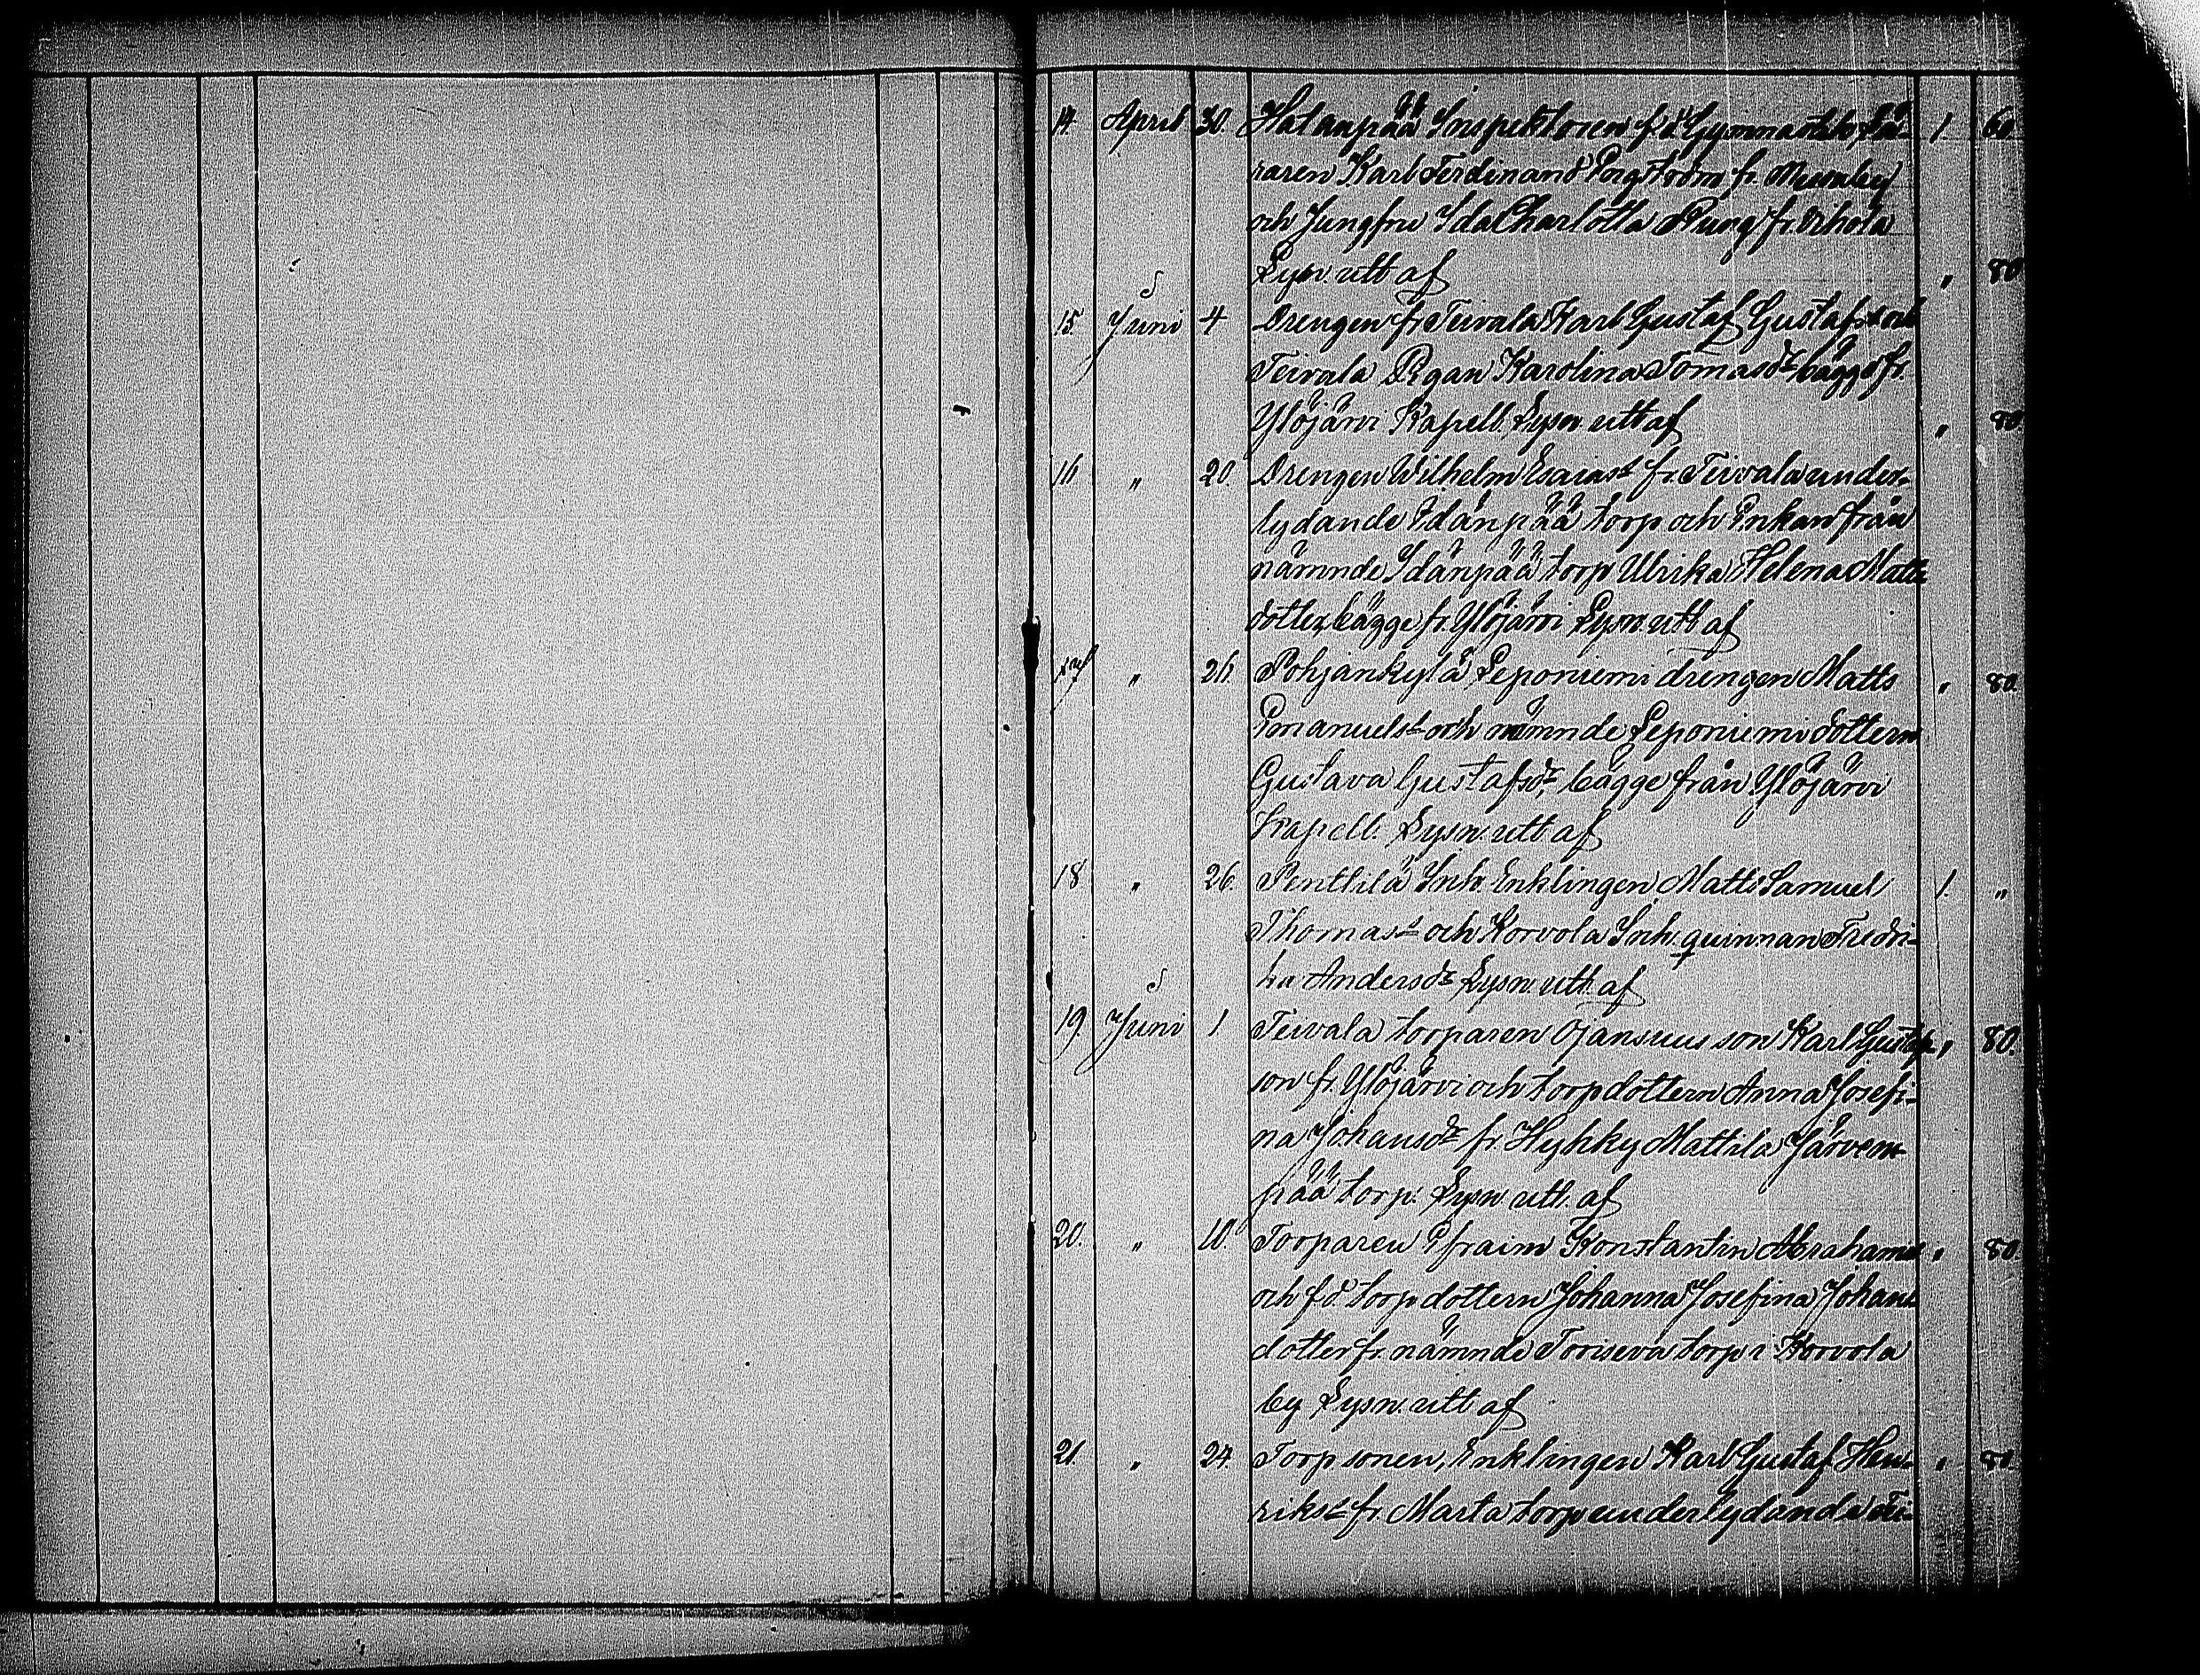 14. April 30. Hatanpää Inspektoren f.d. Gymnastik lä- 1 60.
raren Karl Ferdinand Engström fr. Messuby
och Jungfru Ida Charlotta Rung fr. Vihola
Lysn. utt af " 80
15. Juni 4 Drengen fr. Teivala Karl Gustaf Gustafss. och
Teivala Pigan Karolina Tomasdr, bägge fr.
Ylöjärvi Kapell. Lysn. utt af " 80
16 " 20. Drengen Wilhelm Esaiass. fr. Teivala under-
lydande Idänpää torp och Enkan från
nämnde Idänpää torp Ulrika Helena Matts
dotter, bägge fr. Ylöjärvi Lysn. utt af
17 " 26 Pohjankylä Leponiemi drengen Matts " 80.
Emanuelss. och nämnde Leponiemi dottern
Gustava Gustafsdr, bägge från Ylöjärvi
Kapell. Lysn. utt af
18 " 26. Penttilä Inh. Enklingen Matts Samuel 1. "
Thomass. och Korvola Inh. quinnan Fredri-
ka Andersdr Lysn. utt. af
19. Juni 1 Teivala torparen Ojansuus son Karl Gustafs- " 80.
son fr. Ylöjärvi och torpdottern Anna Josefi-
na Johansdr fr. Hyhky Mattila Järven-
pää torp. Lysn. utt. af
20. " 10. Torparen Efraim Konstantin Abrahams " 80.
och f.d. torpdottern Johanna Josefina Johans
dotter fr. nämnde Toriseva torp i Korvola
by Lysn. utt af
21. " 24. Torpsonen, Enklingen Karl Gustaf Hen- " 80.
rikss. fr. Marta torp underlydande Tei-